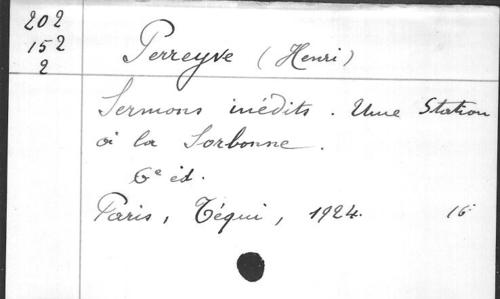 202
152
2
Perreyve (Henri)
Sermons inédits. Une Station
à la Sorbonne.
6e éd.
Paris, Téqui, 1924. 16°